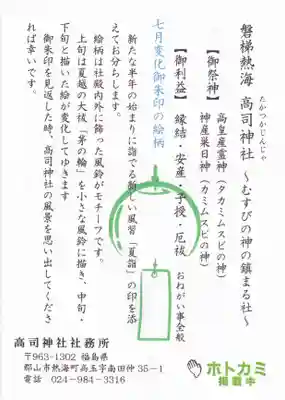 磐梯熱海 高司神社 ~むすびの神の鎮まる社~
たかつかじんじゃ
【御祭神】 高皇産霊神(タカミムスビの神)
神産巣日神(カミムスビの神)
【御利益】 縁結・安産・子授・厄祓 おねがい事全般
七月変化御朱印の絵柄
新たな半年の始まりに詣でる新しい風習「夏詣」の印を添
えてお分らします。
絵柄は社殿内外に飾った風鈴がモチーフです。
上旬は夏越の大祓「茅の輪」を小さな風鈴に描き、中旬・
下旬と描いた絵が変化してゆきます
御朱印を見返した時、高司神社の風景を思い出してくださ
れば幸いです。
高司神社社務所
〒963-1302 福島県
郡山市熱海町高玉字南田仲35-1
電話 024-984-3316
ホトカミ
掲載中